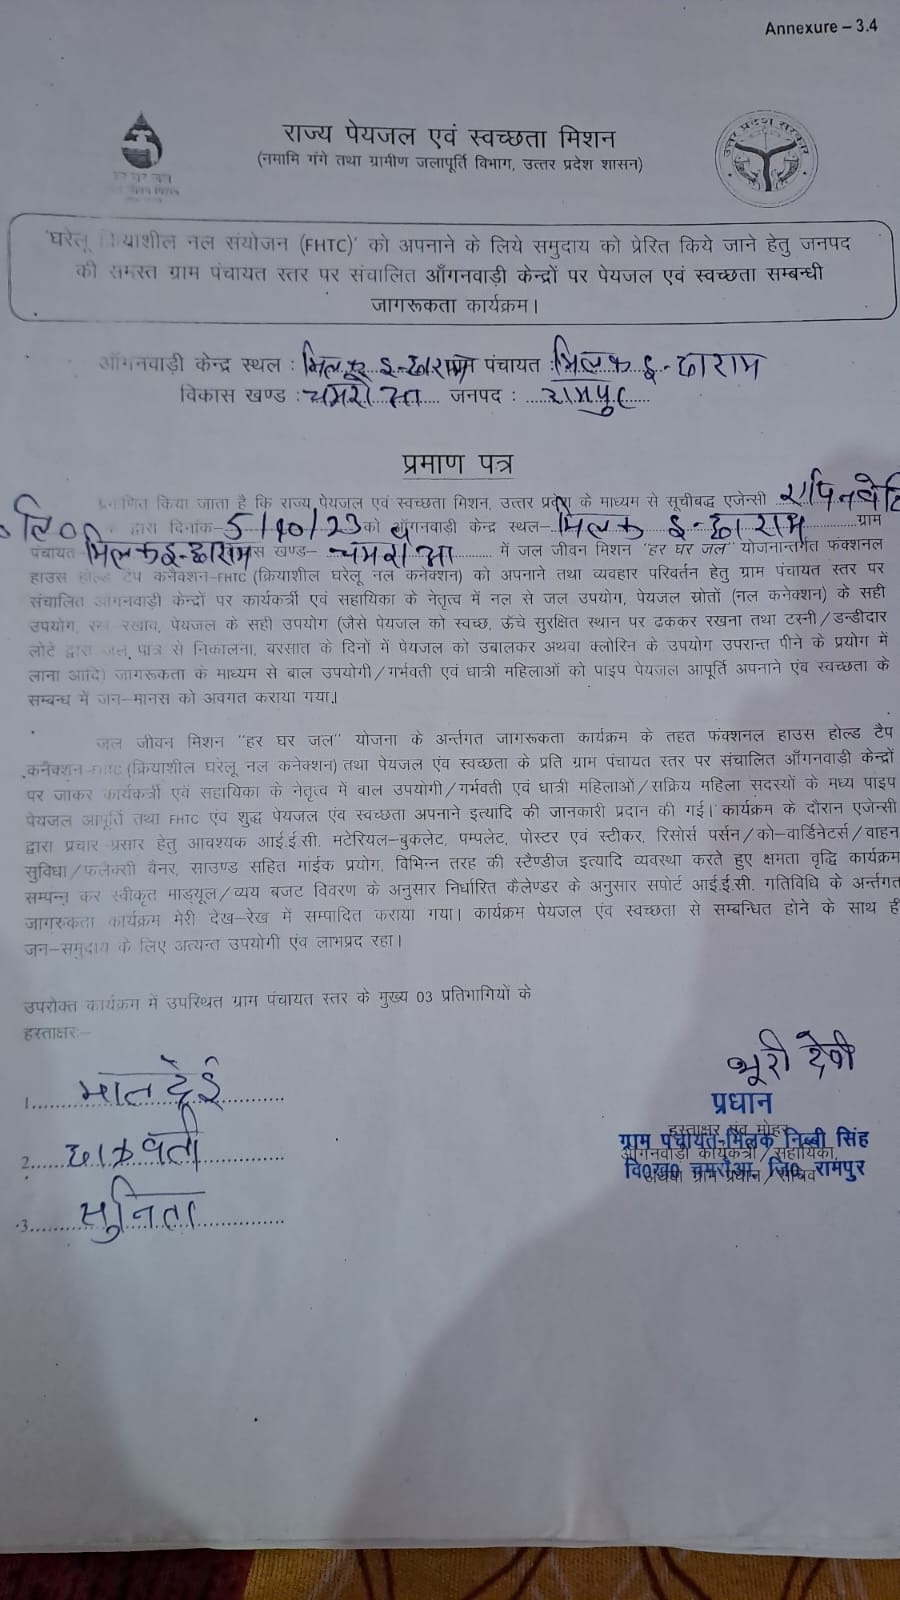 Annexure – 3.4
राज्य पेयजल एवं स्वच्छता मिशन
(नमामि गंगे तथा ग्रामीण जलापूर्ति विभाग, उत्तर प्रदेश शासन)
उत्तर प्रदेश सरकार
'घरेलू क्रियाशील नल संयोजन (FHTC)' को अपनाने के लिये समुदाय को प्रेरित किये जाने हेतु जनपद
की समस्त ग्राम पंचायत स्तर पर संचालित आँगनवाड़ी केन्द्रों पर पेयजल एवं स्वच्छता सम्बन्धी
जागरूकता कार्यक्रम।
आँगनवाड़ी केन्द्र स्थल : मिलक इ-छाराम पंचायत : मिलक इ-छाराम
विकास खण्ड : चमरौआ जनपद : रामपुर
प्रमाण पत्र
प्रमाणित किया जाता है कि राज्य पेयजल एवं स्वच्छता मिशन, उत्तर प्रदेश के माध्यम से सूचीबद्ध एजेन्सी
लि० द्वारा दिनांक- 5/10/23 को आँगनवाड़ी केन्द्र स्थल- मिलक इ-छाराम ग्राम
पंचायत मिलक इ-छाराम खण्ड- चमरौआ में जल जीवन मिशन "हर घर जल" योजनान्तर्गत फंक्शनल
हाउस होल्ड टैप कनेक्शन-FHTC (क्रियाशील घरेलू नल कनेक्शन) को अपनाने तथा व्यवहार परिवर्तन हेतु ग्राम पंचायत स्तर पर
संचालित आंगनवाड़ी केन्द्रों पर कार्यकर्त्री एवं सहायिका के नेतृत्व में नल से जल उपयोग, पेयजल स्रोतों (नल कनेक्शन) के सही
उपयोग, रख रखाव, पेयजल के सही उपयोग (जैसे पेयजल को स्वच्छ, ऊँचे सुरक्षित स्थान पर ढककर रखना तथा टस्नी/डन्डीदार
लोटे द्वारा जल पात्र से निकालना, बरसात के दिनों में पेयजल को उबालकर अथवा क्लोरिन के उपयोग उपरान्त पीने के प्रयोग में
लाना आदि) जागरूकता के माध्यम से बाल उपयोगी/गर्भवती एवं धात्री महिलाओं को पाइप पेयजल आपूर्ति अपनाने एंव स्वच्छता के
सम्बन्ध में जन-मानस को अवगत कराया गया।
जल जीवन मिशन "हर घर जल" योजना के अर्न्तगत जागरूकता कार्यक्रम के तहत फंक्शनल हाउस होल्ड टैप
कनैक्शन-FHTC (क्रियाशील घरेलू नल कनेक्शन) तथा पेयजल एंव स्वच्छता के प्रति ग्राम पंचायत स्तर पर संचालित आँगनवाड़ी केन्द्रों
पर जाकर कार्यकर्त्री एवं सहायिका के नेतृत्व में बाल उपयोगी/गर्भवती एवं धात्री महिलाओं/सक्रिय महिला सदस्यों के मध्य पाइप
पेयजल आपूर्ति तथा FHTC एंव शुद्ध पेयजल एंव स्वच्छता अपनाने इत्यादि की जानकारी प्रदान की गई। कार्यक्रम के दौरान एजेन्सी
द्वारा प्रचार प्रसार हेतु आवश्यक आई.ई.सी. मटेरियल-बुकलेट, पम्पलेट, पोस्टर एवं स्टीकर, रिसोर्स पर्सन/को-वार्डिनेटर्स/वाहन
सुविधा/फ्लैक्सी बैनर, साउण्ड सहित माईक प्रयोग, विभिन्न तरह की स्टैण्डीज इत्यादि व्यवस्था करते हुए क्षमता वृद्धि कार्यक्रम
सम्पन्न कर स्वीकृत माड्यूल/व्यय बजट विवरण के अनुसार निर्धारित कैलेण्डर के अनुसार सपोर्ट आई.ई.सी. गतिविधि के अर्न्तगत
जागरुकता कार्यक्रम मेरी देख-रेख में सम्पादित कराया गया। कार्यक्रम पेयजल एंव स्वच्छता से सम्बन्धित होने के साथ ही
जन-समुदाय के लिए अत्यन्त उपयोगी एंव लाभप्रद रहा।
उपरोक्त कार्यक्रम में उपस्थित ग्राम पंचायत स्तर के मुख्य 03 प्रतिभागियों के
हस्ताक्षर:-
भूरी देवी
1. मालदेई
प्रधान
हस्ताक्षर एंव मोहर
ग्राम पंचायत-मिलक निब्बी सिंह
आँगनवाड़ी कार्यकर्त्री/सहायिका,
2.
वि०ख० चमरौआ, जि० रामपुर
अथवा ग्राम प्रधान/सचिव
3. सुनिता